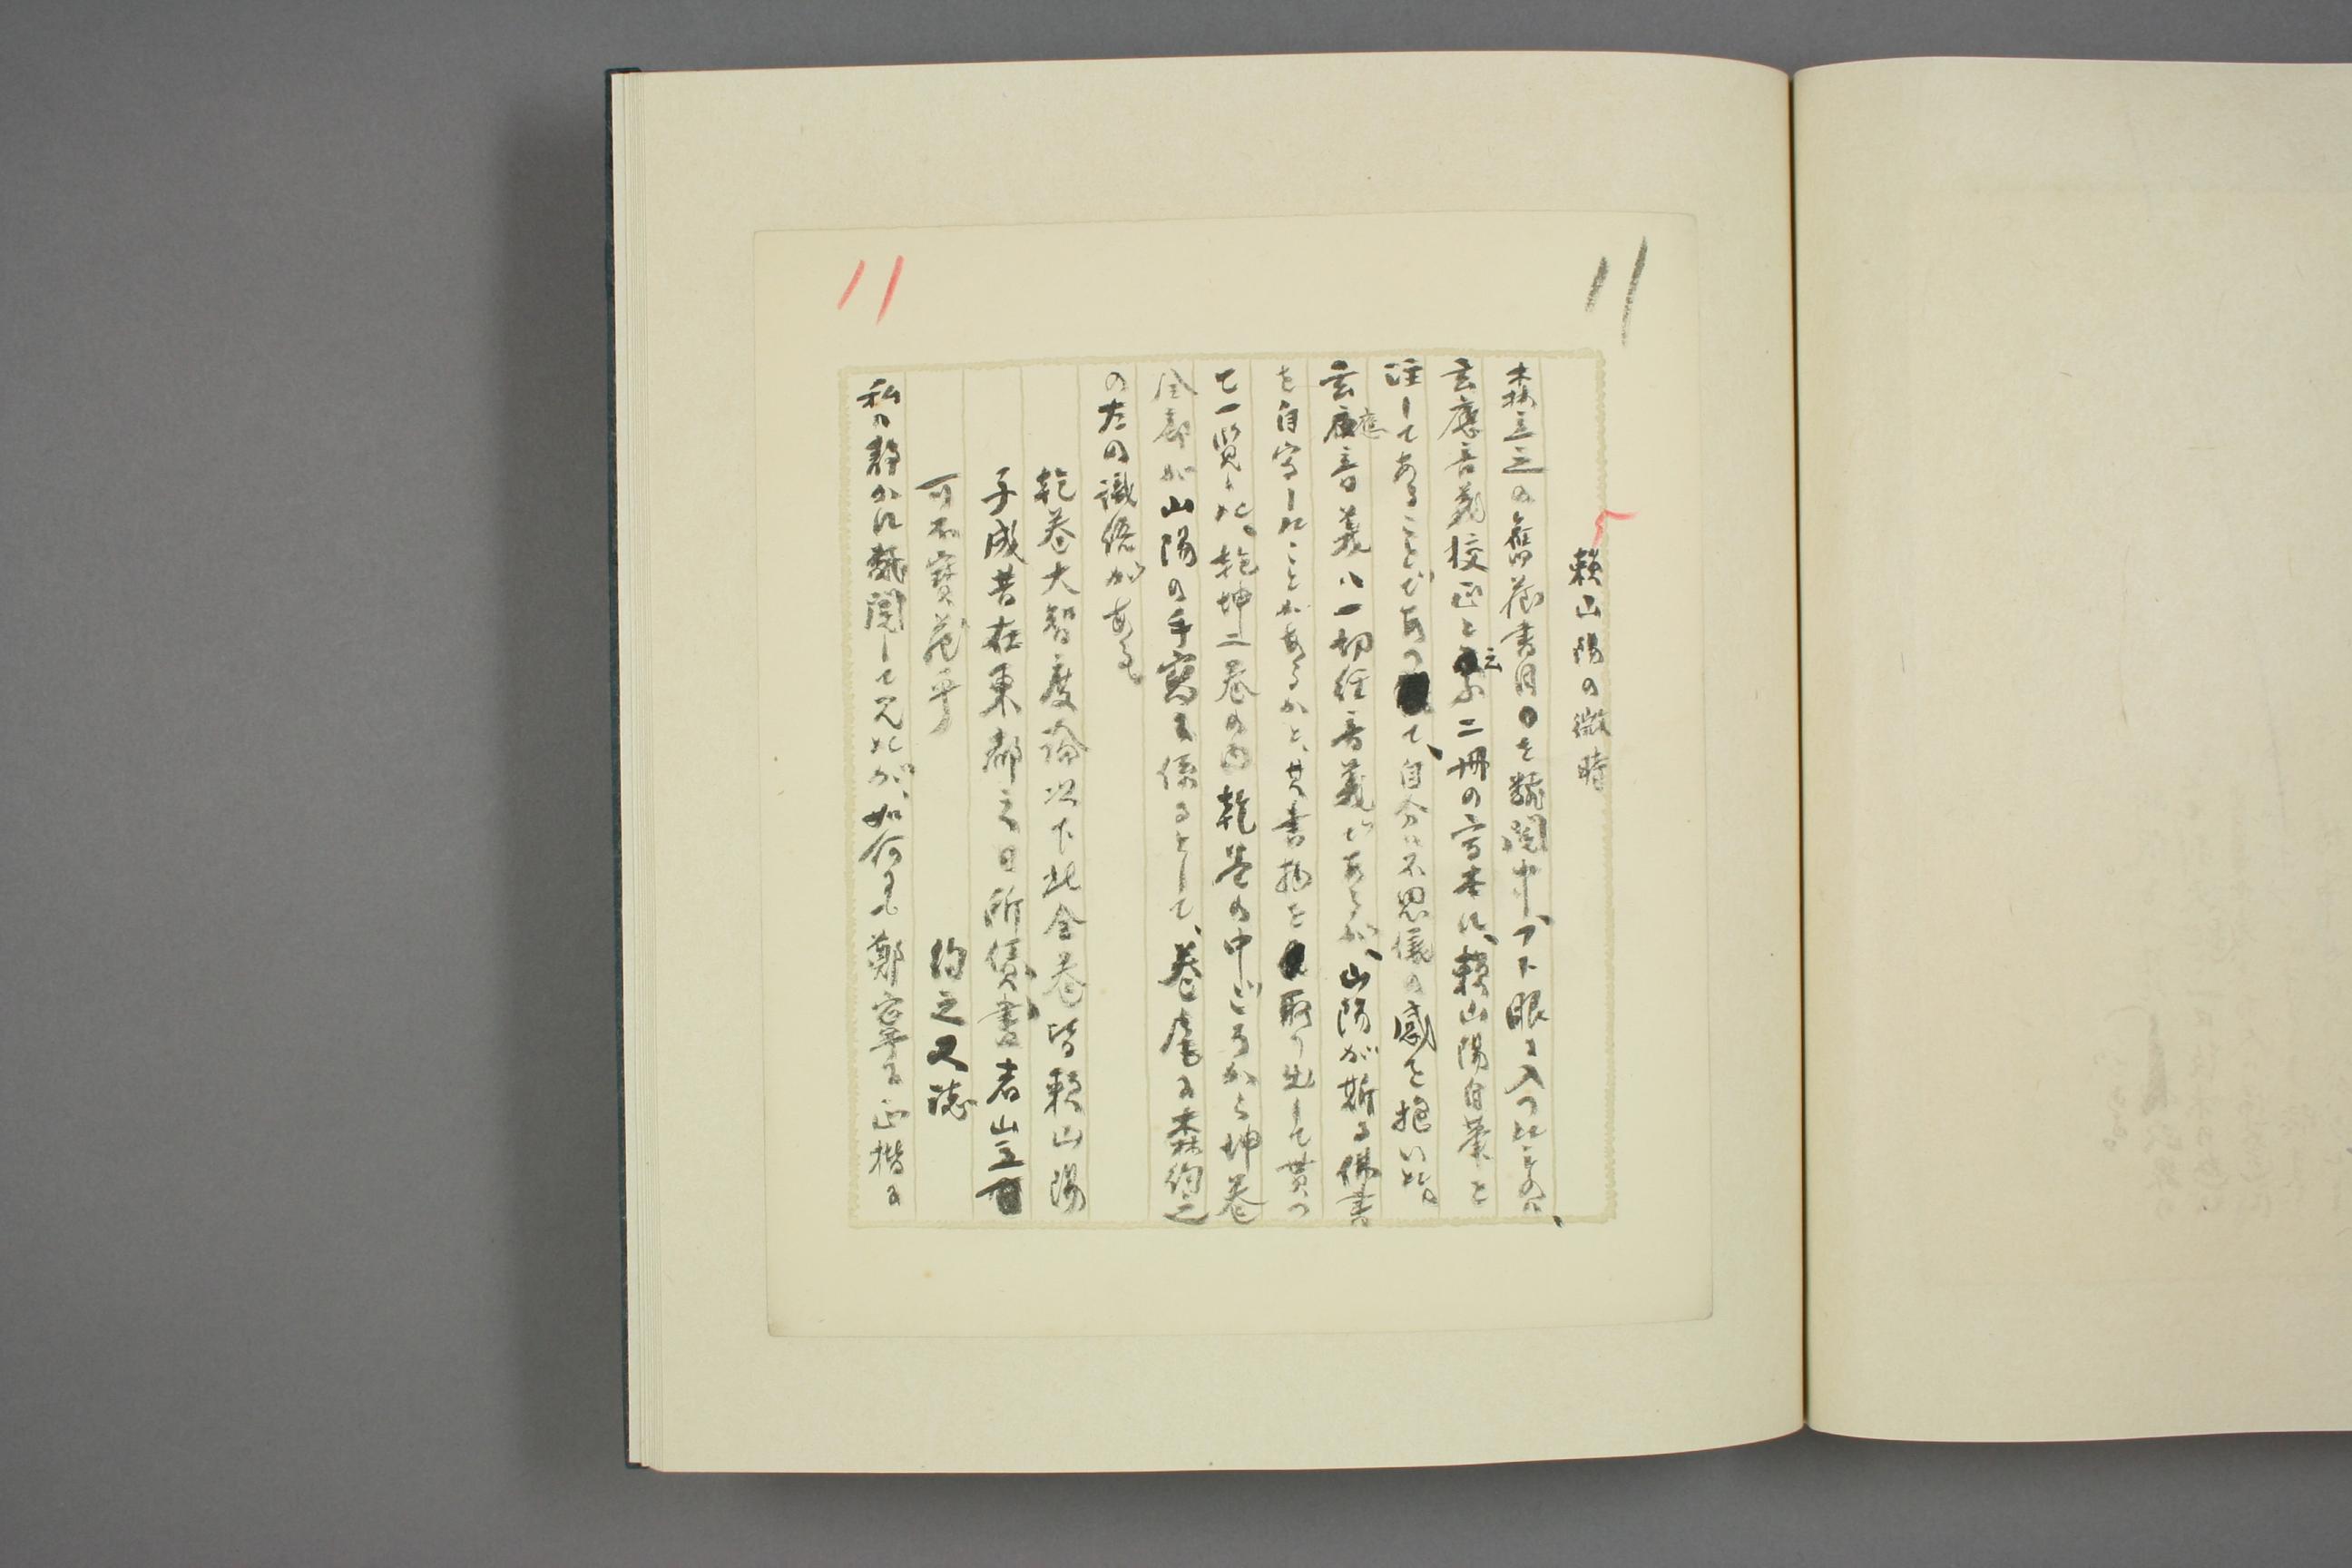 11
11
頼山陽の微時
森立之の舊藏書目を飜閲中、フト眼に入つたものは、
玄應音義校正と云ふ二冊の寫本に、頼山陽自筆と
注してあることであつて、自分は不思儀の感を抱いた。
玄應音義ハ一切経音義であるが、山陽が斯る佛書
を自寫したことがあるかと、其書物を取り出して貰つ
て一覧した。乾坤二巻の内乾巻の中ごろから坤巻
全部が山陽の手寫に係るとして、巻尾に森約之
の左の識語がある
乾巻大智度論以下此全巻皆頼山陽
子成昔在東都之日所傭書者也
可不寶藏乎
約之又誌
私の静かに飜閲して見たが、如何にも鄭寧に正楷に